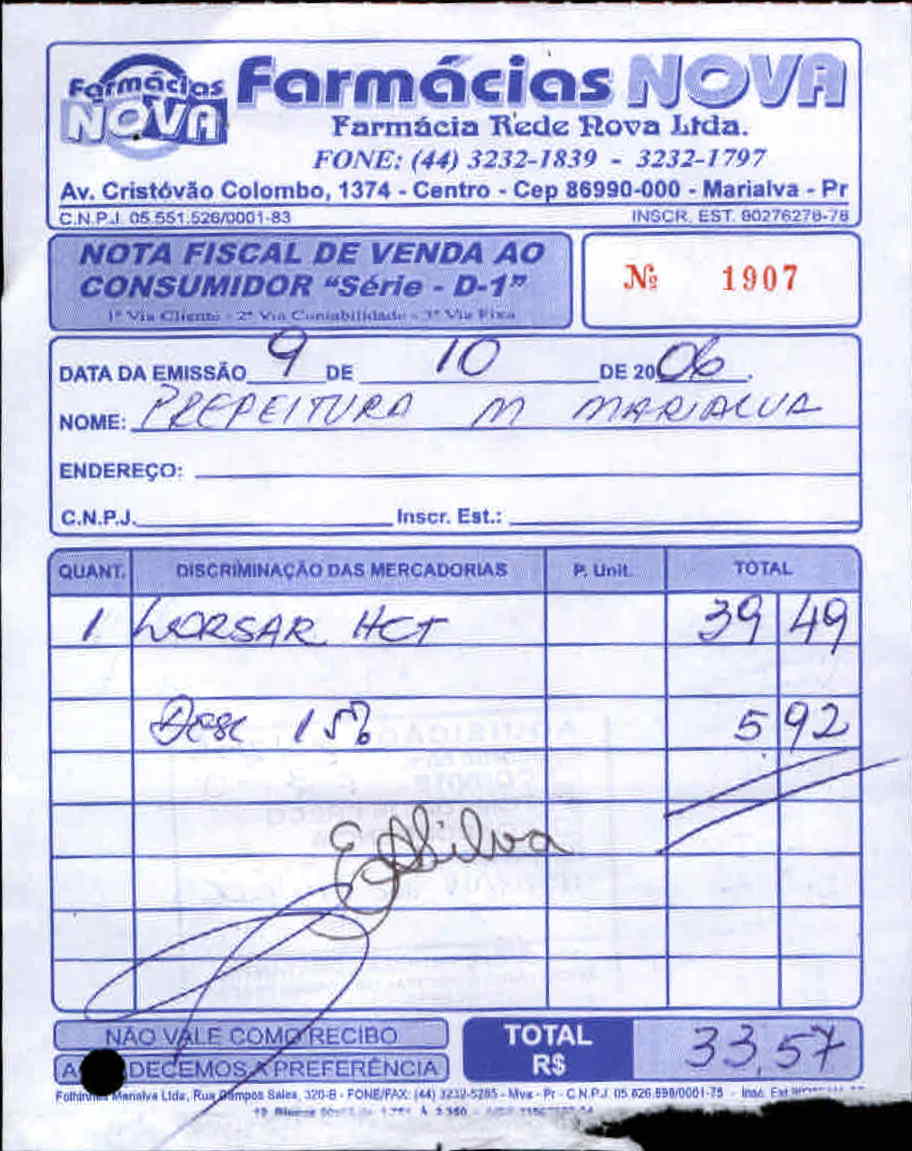 Farmácias NOVA
Farmácias NOVA
Farmácia Rede Nova Ltda.
FONE: (44) 3232-1839 - 3232-1797
Av. Cristóvão Colombo, 1374 - Centro - Cep 86990-000 - Marialva - Pr
C.N.P.J. 05.551.526/0001-83 INSCR. EST. 90276278-78
NOTA FISCAL DE VENDA AO
CONSUMIDOR "Série - D-1"
1ª Via Cliente - 2ª Via Contabilidade - 3ª Via Fixa
Nº 1907
DATA DA EMISSÃO 9 DE 10 DE 2006.
NOME: PREFEITURA M MARIALVA
ENDEREÇO:
C.N.P.J. Inscr. Est.:
QUANT. DISCRIMINAÇÃO DAS MERCADORIAS P. Unit. TOTAL
1 LORSAR HCT 39 49
Desc 15% 5 92
EASilva
NÃO VALE COMO RECIBO
DECEMOS A PREFERÊNCIA
TOTAL
R$ 33,57
Marialva Ltda, Rua Campos Sales, 320-B - FONE/FAX: (44) 3232-5265 - Mva - Pr - C.N.P.J. 05.626.